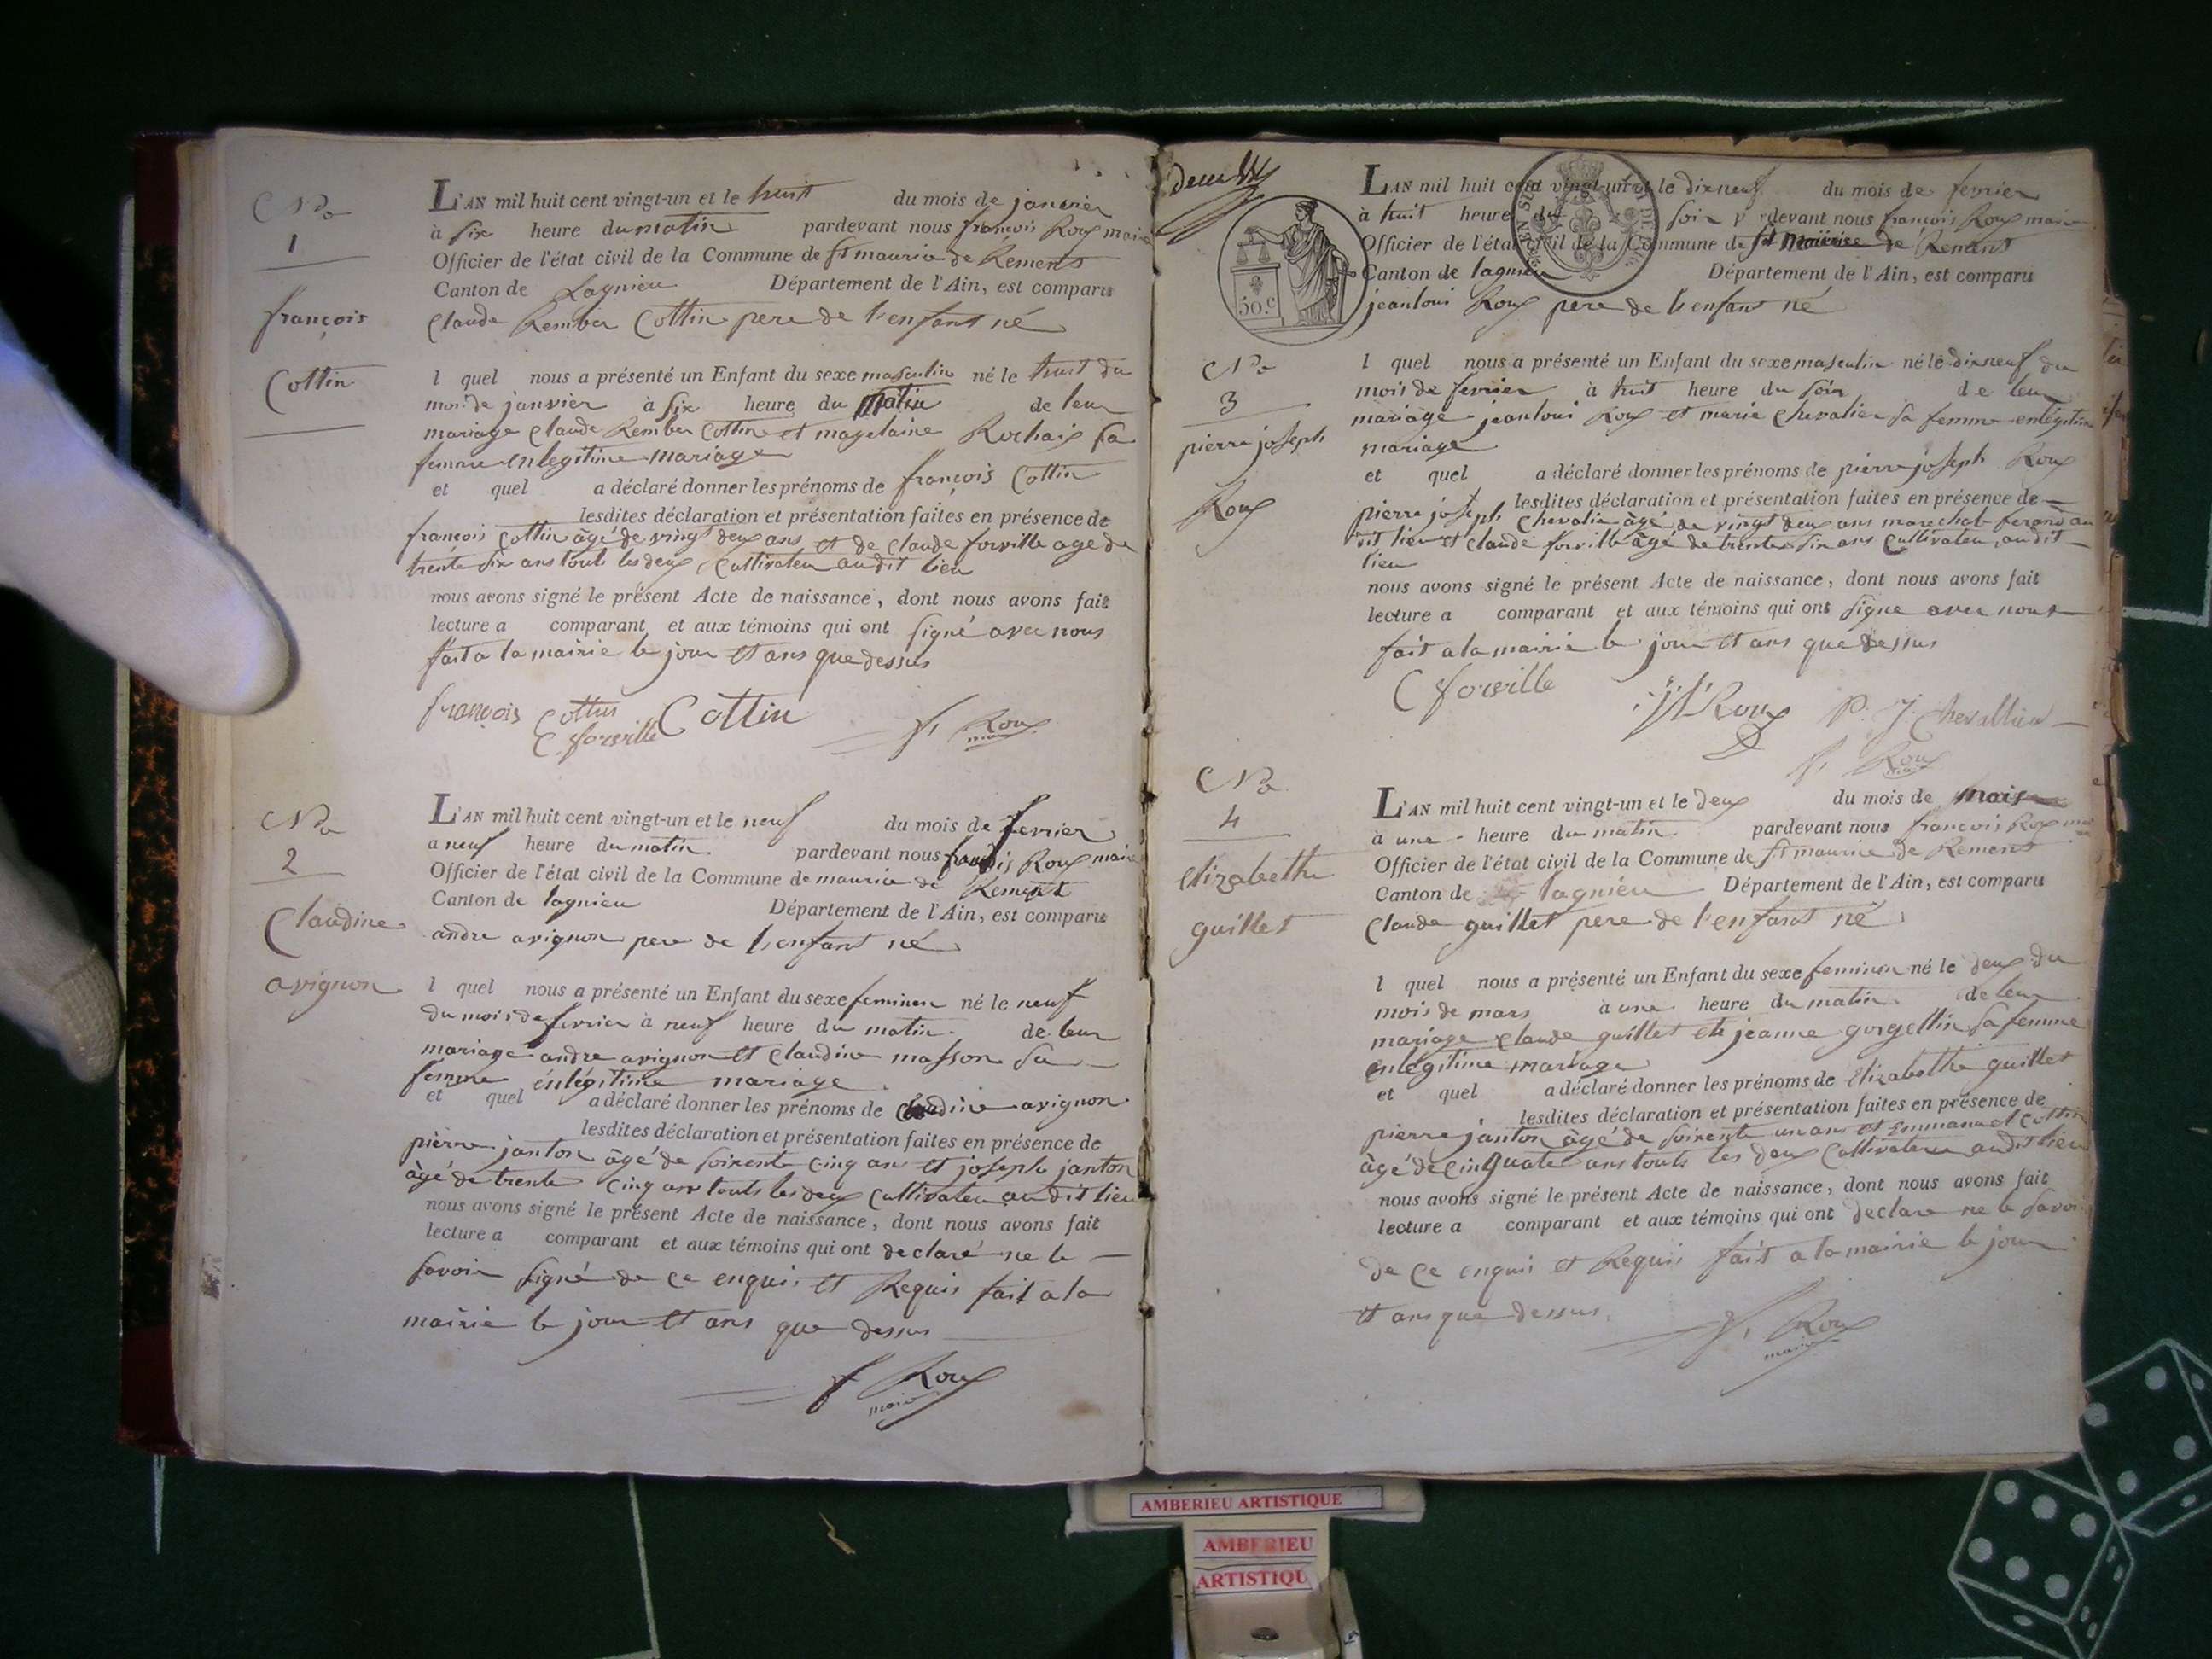 No
1
françois
Cottin
L'AN mil huit cent vingt-un et le huit du mois de janvier
à six heure du matin pardevant nous françois Roux maire
Officier de l'état civil de la Commune de st maurice de Remens
Canton de Lagnieu Département de l'Ain, est comparu
Claude Rember Cottin pere de l'enfant né
l quel nous a présenté un Enfant du sexe masculin né le huit du
mois de janvier à six heure du matin de leur
mariage Claude Rember Cottin et magelaine Rochaix sa
femme en legitime mariage
et quel a déclaré donner les prénoms de françois Cottin
lesdites déclaration et présentation faites en présence de
françois Cottin âgé de vingt deux ans et de Claude forville age de
trente six ans touts les deux Cultivateur au dit lieu
nous avons signé le présent Acte de naissance, dont nous avons fait
lecture a comparant et aux témoins qui ont signé avec nous
fait a la mairie le jour et ans que dessus
françois Cottin Cottin
C forville f, Roux
maire
No
2
Claudine
avignon
L'AN mil huit cent vingt-un et le neuf du mois de fevrier
a neuf heure du matin pardevant nous françois Roux maire
Officier de l'état civil de la Commune de maurice de Remens
Canton de lagnieu Département de l'Ain, est comparu
andre avignon pere de l'enfant né
l quel nous a présenté un Enfant du sexe feminen né le neuf
du mois de fevrier à neuf heure du matin de leur
mariage andre avignon et Claudine masson sa
femme enlégitime mariage
et quel a déclaré donner les prénoms de Claudine avignon
lesdites déclaration et présentation faites en présence de
pierre janton âgé de soixente cinq ans et joseph janton
âgé de trente cinq ans touts les deux Cultivateur au dit lieu
nous avons signé le présent Acte de naissance, dont nous avons fait
lecture a comparant et aux témoins qui ont declaré ne le
savoir signé de ce enquis et Requis fait a la
mairie le jour et ans que dessus
f Roux
maire
50.c
No
3
pierre joseph
Roux
LAN mil huit cent vingt-un et le dix neuf du mois de fevrier
à huit heure du soir pardevant nous françois Roux maire
Officier de l'état civil de la Commune de st maurice de Remens
Canton de lagnieu Département de l'Ain, est comparu
jean loui Roux pere de l'enfant né
l quel nous a présenté un Enfant du sexe masculin né le dix neuf du
mois de fevrier à huit heure du soir de leur
mariage jean loui Roux et marie Chevalier sa femme enlégitime
mariage
et quel a déclaré donner les prénoms de pierre joseph Roux
lesdites déclaration et présentation faites en présence de
pierre joseph Chevalier âgé de vingt deux ans marechal ferand au
dit lieu et Claude forville âgé de trente six ans Cultivateur au dit
lieu
nous avons signé le présent Acte de naissance, dont nous avons fait
lecture a comparant et aux témoins qui ont signe avec nous
fait a la mairie le jour et ans que dessus
C forville Roux P. J. Chevallier
f, Roux
No
4
Elizabethe
guillet
L'AN mil huit cent vingt-un et le deux du mois de mars
à une heure du matin pardevant nous françois Roux
Officier de l'état civil de la Commune de st maurice de Remens
Canton de lagnieu Département de l'Ain, est comparu
Claude guillet pere de l'enfant né
l quel nous a présenté un Enfant du sexe feminen né le deux du
mois de mars à une heure du matin de leur
mariage Claude guillet et jeanne gorgellin sa femme
enlégitime mariage
et quel a déclaré donner les prénoms de Elizabethe guillet
lesdites déclaration et présentation faites en présence de
pierre janton âgé de soixente un ans et Emmanuel Cottin
âgé de cinquate ans touts les deux Cultivateur au dit lieu
nous avons signé le présent Acte de naissance, dont nous avons fait
lecture a comparant et aux témoins qui ont declare ne le savoir
de ce enquis et Requis fait a la mairie le jour
et ans que dessus
f, Roux
maire
AMBERIEU ARTISTIQUE
AMBERIEU
ARTISTIQU